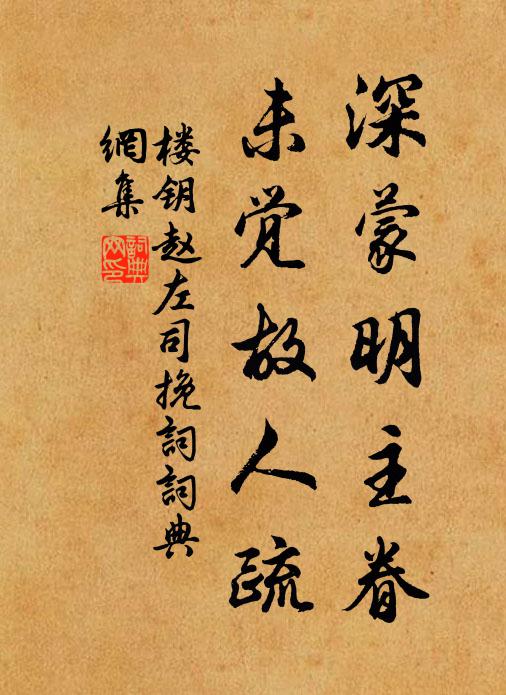 深蒙明主眷
未觉故人疏
楼钥赵左司挽詞詞典
網集
詞典网印